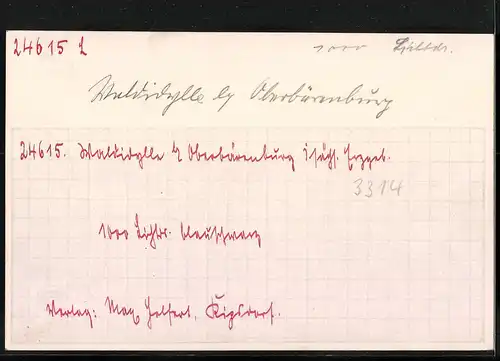 24615 L 1000 Lichtdr.
Waldidylle b/ Oberbärenburg
24615. Waldidylle b/ Oberbärenburg i/sächs. Erzgeb.
3314
1000 Lichtdr. blauschwarz
Verlag: Max Helfert, Kipsdorf.